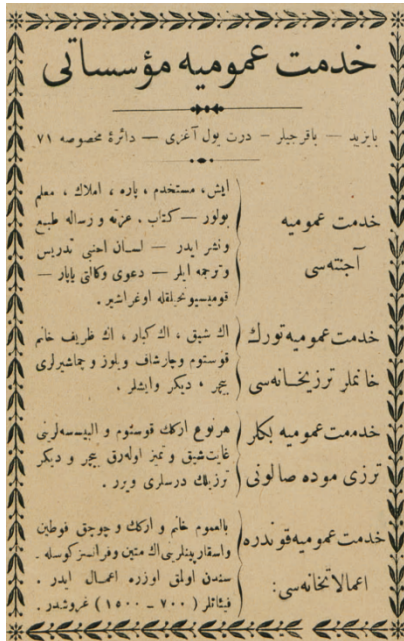 خدمت عمومیه مؤسساتی
بایزید — باقرجیلر — درت یول آغزی — دائرهٔ مخصوصه ۷۱
خدمت عمومیه
آجنته‌سی
ایش، مستخدم، پاره، املاك، معلم
بولور — كتاب، غزته و رساله طبع
و نشر ایدر — لسان اجنبی تدریس
و ترجمه ایلر — دعوی وكالتی یاپار —
قومیسیونجیلقله اوغراشیر.
خدمت عمومیه تورك
خانملر ترزیخانه‌سی
اك شیق، اك كبار، اك ظریف خانم
قوستوم و چارشاف و بلوز و چماشیرلری
بیچر، دیكر و ایشلر.
خدمت عمومیه بكلر
ترزی موده صالونی
هرنوع اركك قوستوم و البیسه‌لرینی
غایت شیق و تمیز اوله‌رق بیچر و دیكر
ترزیلك درسلری ویرر.
خدمت عمومیه قوندره
اعمالاتخانه‌سی:
بالعموم خانم و اركك و چوجق فوطین
و اسقارپینلرینی اك متین و فرانسز كوسله‌
سندن اولمق اوزره اعمال ایدر.
فیئاتلر (۷۰۰ - ۱۵۰۰) غروشدر.